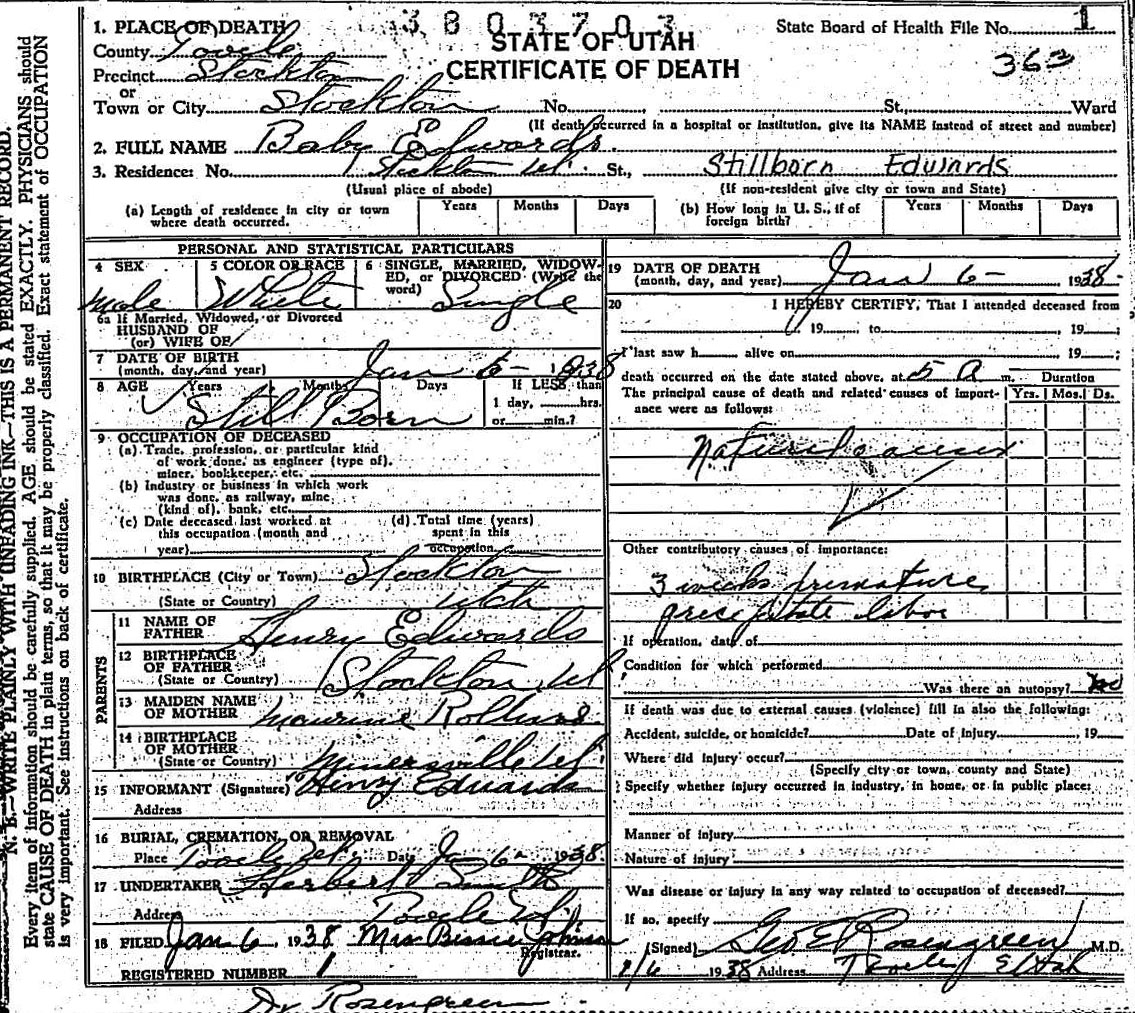 3803703
State Board of Health File No. 1
363
STATE OF UTAH
CERTIFICATE OF DEATH
1. PLACE OF DEATH
County Tooele
Precinct Stockton
or
Town or City Stockton No. , St, Ward
(If death occurred in a hospital or institution, give its NAME instead of street and number)
2. FULL NAME Baby Edwards
3. Residence: No. Stockton Ut. St., Stillborn Edwards
(Usual place of abode) (If non-resident give city or town and State)
(a) Length of residence in city or town where death occurred. Years Months Days
(b) How long in U. S., if of foreign birth? Years Months Days
PERSONAL AND STATISTICAL PARTICULARS
4 SEX Male
5 COLOR OR RACE White
6 SINGLE, MARRIED, WIDOWED, or DIVORCED (Write the word) Single
6a If Married, Widowed, or Divorced
HUSBAND OF
(or) WIFE OF
7 DATE OF BIRTH
(month, day, and year) Jan 6- 1938
8 AGE Years Months Days If LESS than
Still Born 1 day, hrs.
or min.?
9 OCCUPATION OF DECEASED
(a) Trade, profession, or particular kind
of work done, as engineer (type of),
miner, bookkeeper, etc.
(b) Industry or business in which work
was done, as railway, mine
(kind of), bank, etc.
(c) Date deceased last worked at
this occupation (month and
year)
(d) Total time (years)
spent in this
occupation
10 BIRTHPLACE (City or Town) Stockton
(State or Country) Utah
PARENTS
11 NAME OF
FATHER Henry Edwards
12 BIRTHPLACE
OF FATHER
(State or Country) Stockton Ut
13 MAIDEN NAME
OF MOTHER Maurine Rollins
14 BIRTHPLACE
OF MOTHER
(State or Country) Minersville Ut.
15 INFORMANT (Signature) Henry Edwards
Address
16 BURIAL, CREMATION, OR REMOVAL
Place Tooele Date Jan 6- 1938.
17 UNDERTAKER Herbert Smith
Address Tooele
18 FILED Jan 6 1938 Mrs Bessie Johnson
Registrar.
REGISTERED NUMBER 1
Dr Rosengreen
19 DATE OF DEATH
(month, day, and year) Jan 6- 1938.
20 I HEREBY CERTIFY, That I attended deceased from
, 19 , to , 19 ;
I last saw h alive on , 19 ;
death occurred on the date stated above, at 5 A m. Duration
The principal cause of death and related causes of importance were as follows: Yrs. Mos. Ds.
Natural causes
Other contributory causes of importance:
3 weeks premature
precipitate labor
If operation, date of
Condition for which performed
Was there an autopsy? no
If death was due to external causes (violence) fill in also the following:
Accident, suicide, or homicide? Date of injury , 19
Where did injury occur?
(Specify city or town, county and State)
Specify whether injury occurred in industry, in home, or in public place:
Manner of injury
Nature of injury
Was disease or injury in any way related to occupation of deceased?
If so, specify
(Signed) Geo E Rosengreen M.D.
1/6 1938 Address Tooele Utah
N. B.—WRITE PLAINLY WITH UNFADING INK—THIS IS A PERMANENT RECORD.
Every item of information should be carefully supplied. AGE should be stated EXACTLY. PHYSICIANS should
state CAUSE OF DEATH in plain terms, so that it may be properly classified. Exact statement of OCCUPATION
is very important. See instructions on back of certificate.